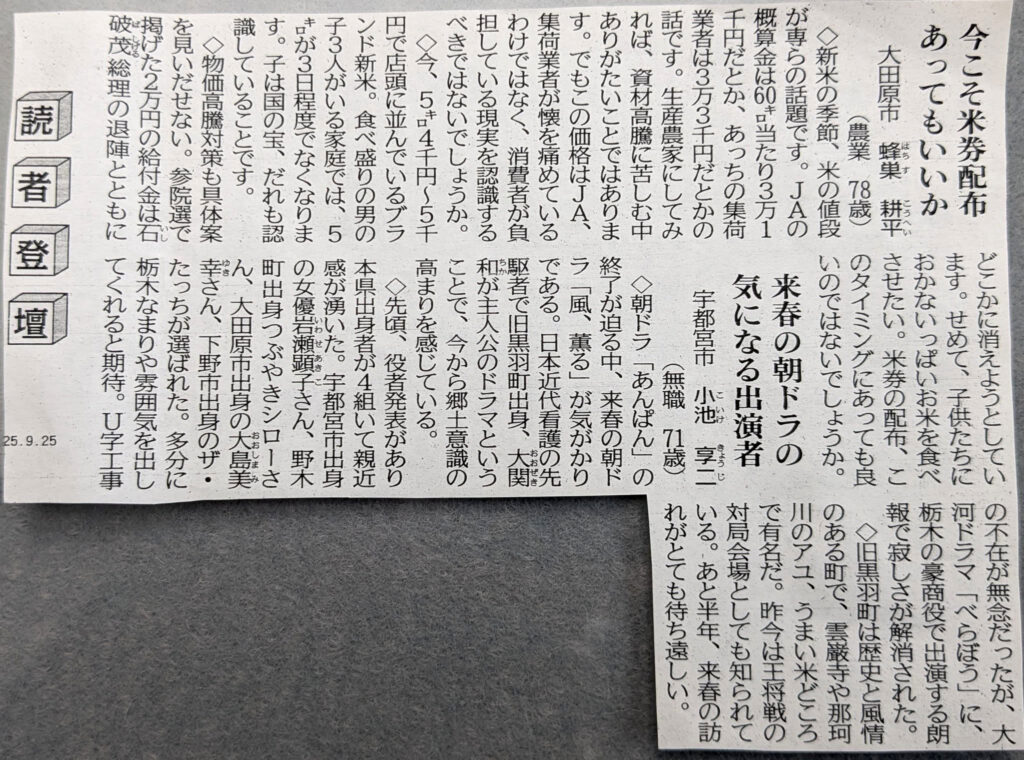 今こそ米券配布
あってもいいか
大田原市　蜂巣　耕平
はちす　こうへい
（農業　78歳）
◇新米の季節、米の値段
が専らの話題です。ＪＡの
概算金は60㌔当たり３万１
千円だとか、あっちの集荷
業者は３万３千円だとかの
話です。生産農家にしてみ
れば、資材高騰に苦しむ中
ありがたいことではありま
す。でもこの価格はＪＡ、
集荷業者が懐を痛めている
わけではなく、消費者が負
担している現実を認識する
べきではないでしょうか。
◇今、５㌔４千円～５千
円で店頭に並んでいるブラ
ンド新米。食べ盛りの男の
子３人がいる家庭では、５
㌔が３日程度でなくなりま
す。子は国の宝、だれも認
識していることです。
◇物価高騰対策も具体案
を見いだせない。参院選で
掲げた２万円の給付金は石
いし
破茂総理の退陣とともに
ばしげる
どこかに消えようとしてい
ます。せめて、子供たちに
おかないっぱいお米を食べ
させたい。米券の配布、こ
のタイミングにあっても良
いのではないでしょうか。
来春の朝ドラの
気になる出演者
宇都宮市　小池　享二
こいけ　きょうじ
（無職　71歳）
◇朝ドラ「あんぱん」の
終了が迫る中、来春の朝ド
ラ「風、薫る」が気がかり
である。日本近代看護の先
駆者で旧黒羽町出身、大関
おおぜき
和が主人公のドラマという
ちか
ことで、今から郷土意識の
高まりを感じている。
◇先頃、役者発表があり
本県出身者が４組いて親近
感が湧いた。宇都宮市出身
の女優岩瀬顕子さん、野木
いわせあきこ
町出身つぶやきシローーさ
ん、大田原市出身の大島美
おおしまみ
幸さん、下野市出身のザ・
ゆき
たっちが選ばれた。多分に
栃木なまりや雰囲気を出し
てくれると期待。Ｕ字工事
の不在が無念だったが、大
河ドラマ「べらぼう」に、
栃木の豪商役で出演する朗
報で寂しさが解消された。
◇旧黒羽町は歴史と風情
のある町で、雲巌寺や那珂
川のアユ、うまい米どころ
で有名だ。昨今は王将戦の
対局会場としても知られて
いる。あと半年、来春の訪
れがとても待ち遠しい。
読者登壇
25.9.25